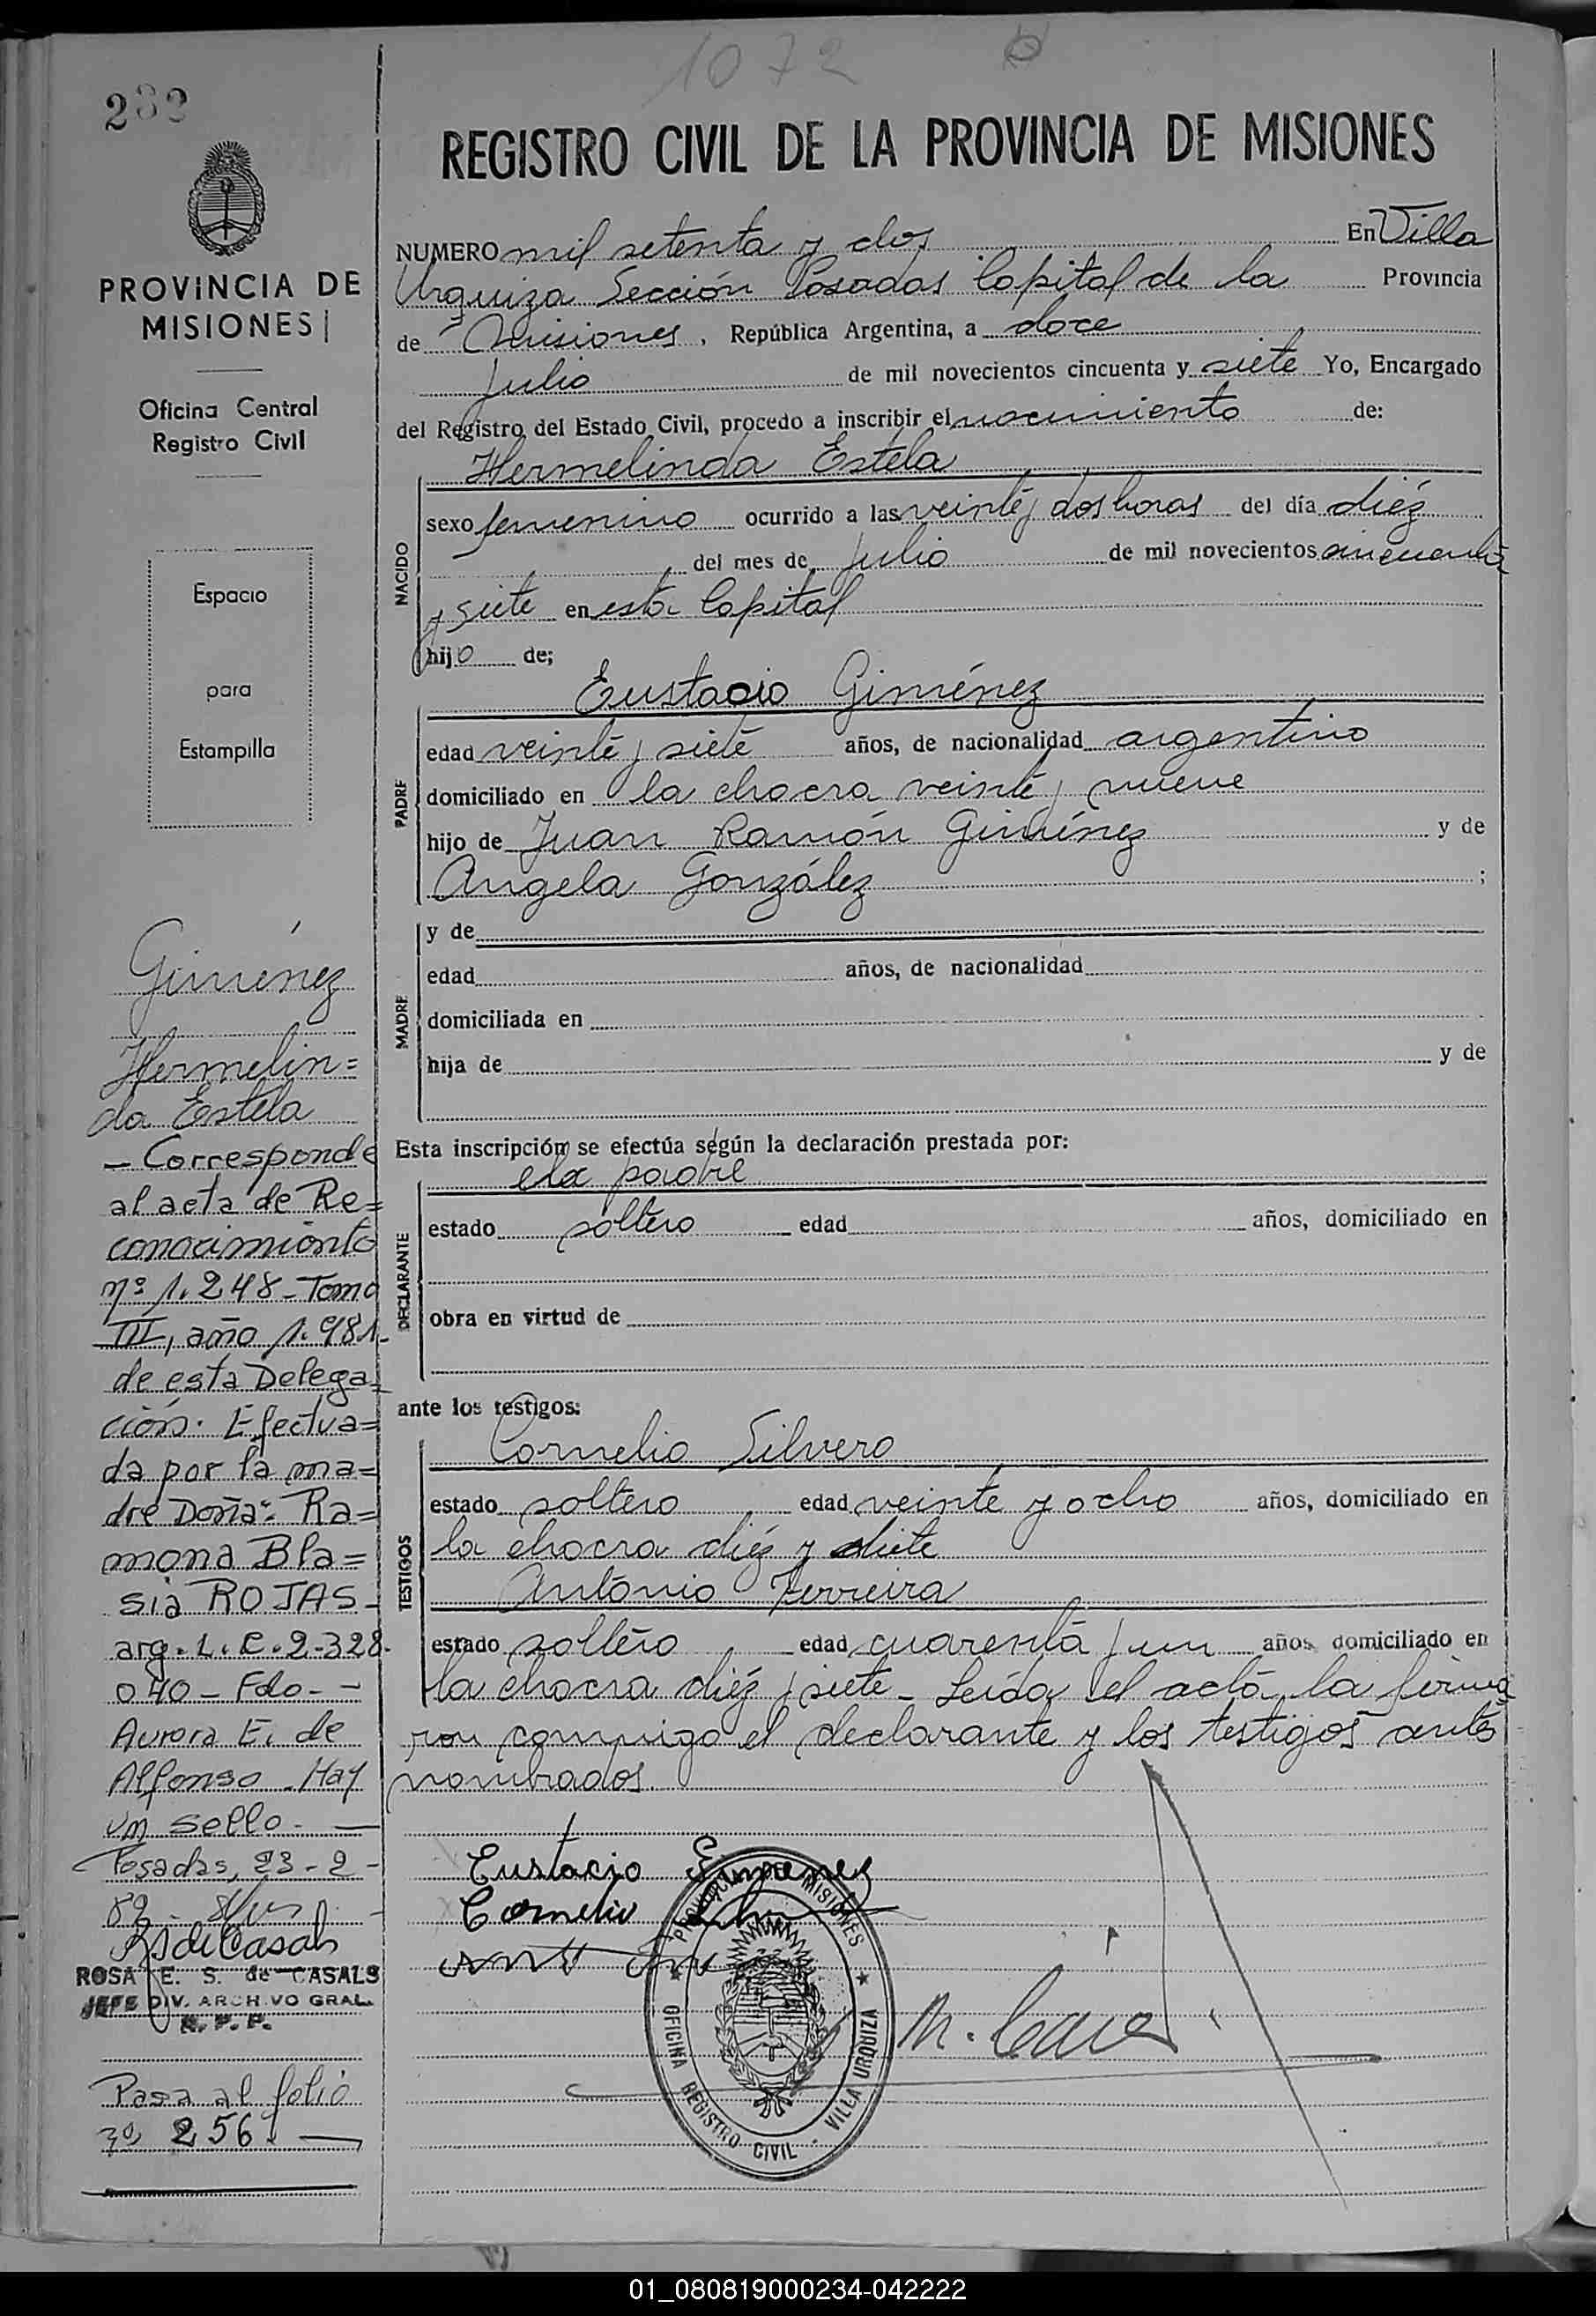 1072
232
PROVINCIA DE
MISIONES
Oficina Central
Registro Civil
Espacio
para
Estampilla
Giménez
Hermelin=
da Estela
- Corresponde
al acta de Re=
conocimiento
nº 1.248 - Tomo
III, año 1.981-
de esta Delega=
ción. Efectua=
da por la ma=
dre Doña: Ra=
mona Bla=
sia ROJAS -
arg. L. C. 2.328.
040 - Fdo - -
Aurora E. de
Alfonso - Hay
un sello - —
Posadas, 23 - 2 -
82 -
ROSA E. S. de CASALS
JEFE DIV. ARCHIVO GRAL.
R. P. P.
Pasa al folio
nº 256 —
REGISTRO CIVIL DE LA PROVINCIA DE MISIONES
NUMERO mil setenta y dos En Villa
Urquiza Sección Posadas Capital de la Provincia
de Misiones, República Argentina, a doce
Julio de mil novecientos cincuenta y siete Yo, Encargado
del Registro del Estado Civil, procedo a inscribir el nacimiento de:
Hermelinda Estela
NACIDO
sexo femenino ocurrido a las veinte y dos horas del día diéz
del mes de Julio de mil novecientos cincuenta
y siete en esta Capital
hijo de;
Eustacio Giménez
PADRE
edad veinte y siete años, de nacionalidad argentino
domiciliado en la chacra veinte y nueve
hijo de Juan Ramón Giménez y de
Angela González ;
MADRE
y de
edad años, de nacionalidad
domiciliada en
hija de y de
Esta inscripción se efectúa según la declaración prestada por:
DECLARANTE
el padre
estado soltero edad años, domiciliado en
obra en virtud de
ante los testigos:
TESTIGOS
Cornelio Silvero
estado soltero edad veinte y ocho años, domiciliado en
la chacra diéz y siete
Antonio Ferreira
estado soltero edad cuarenta y un años domiciliado en
la chacra diéz y siete - Leída el acta la firma
ron conmigo el declarante y los testigos ante
nombrados.
Eustacio Gimenez
Cornelio
PROVINCIA DE MISIONES
OFICINA REGISTRO CIVIL - VILLA URQUIZA
01_080819000234-042222